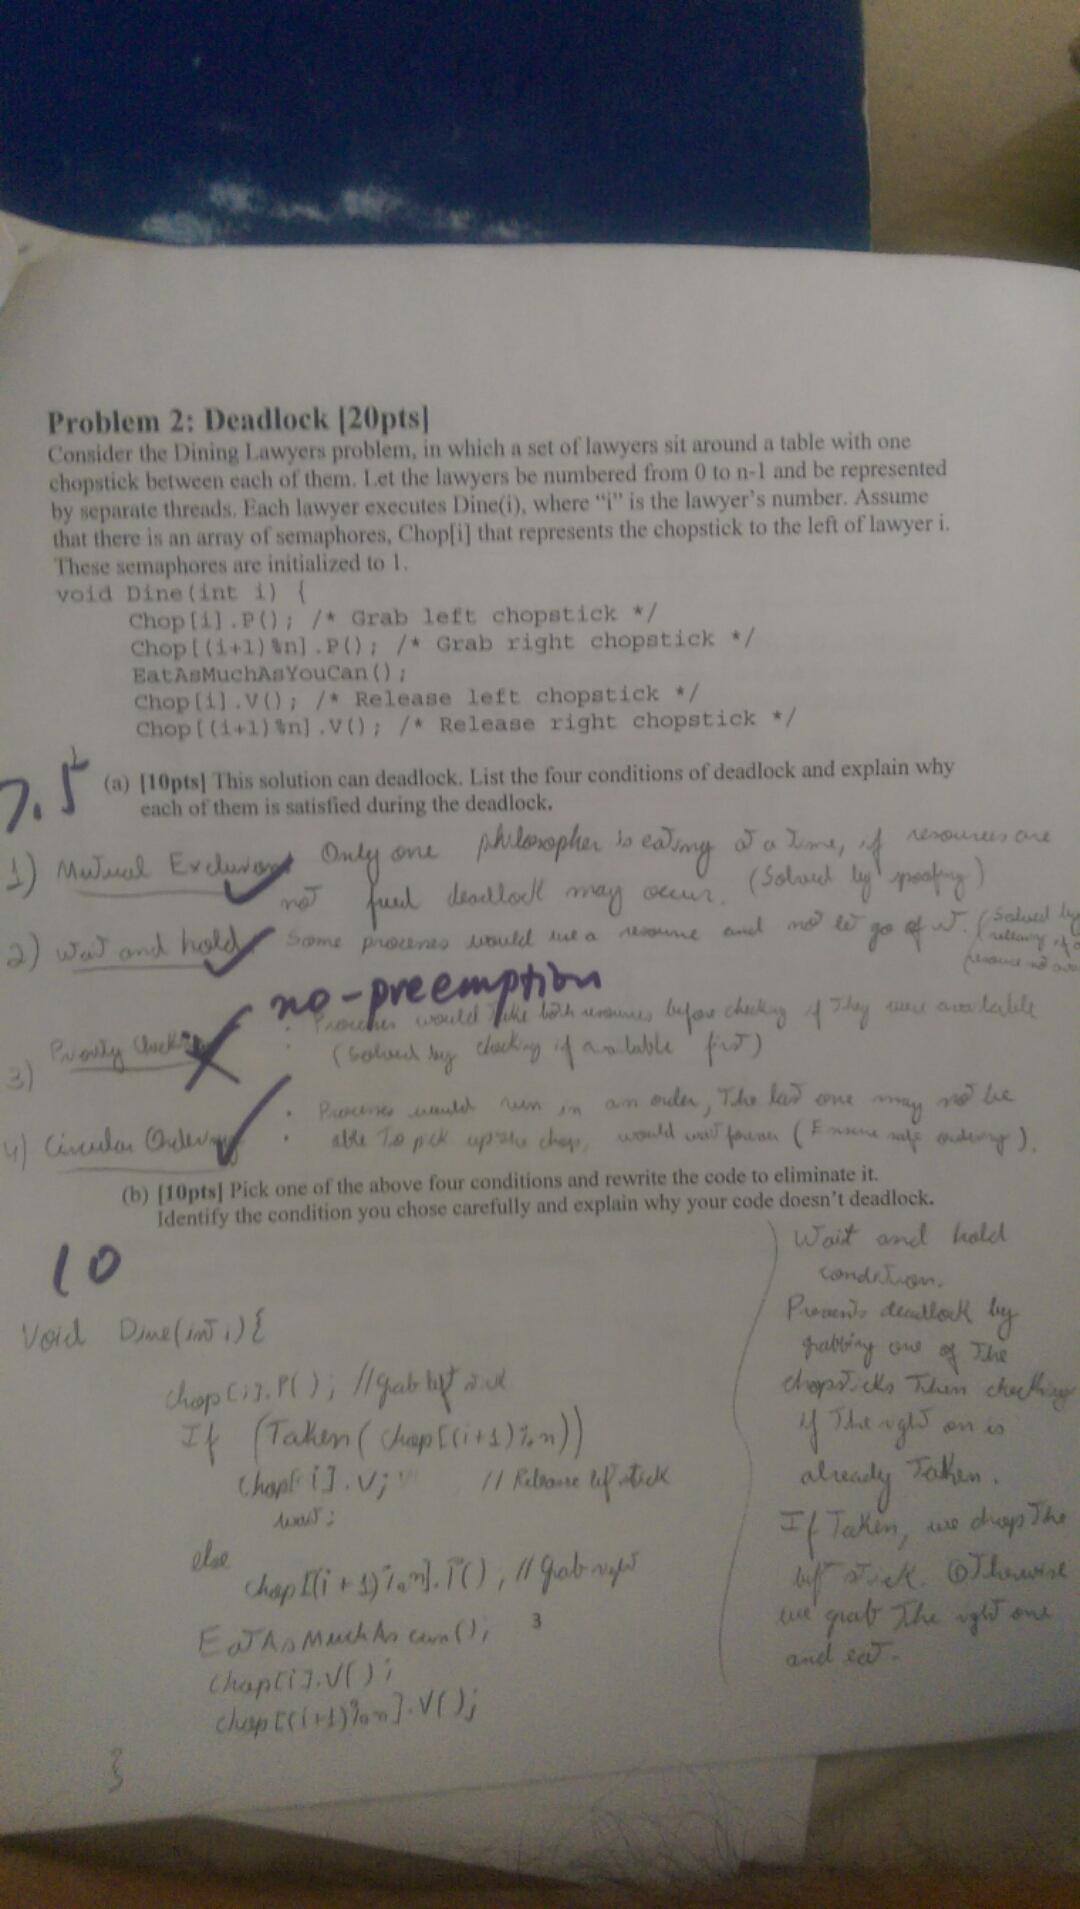 Problem 2: Deadlock [20pts]
Consider the Dining Lawyers problem, in which a set of lawyers sit around a table with one
chopstick between each of them. Let the lawyers be numbered from 0 to n-1 and be represented
by separate threads. Each lawyer executes Dine(i), where “i” is the lawyer's number. Assume
that there is an array of semaphores, Chop[i] that represents the chopstick to the left of lawyer i.
These semaphores are initialized to 1.
void Dine(int i) {
Chop[i].P(); /* Grab left chopstick */
Chop[(i+1)%n].P(); /* Grab right chopstick */
EatAsMuchAsYouCan();
Chop[i].V(); /* Release left chopstick */
Chop[(i+1)%n].V(); /* Release right chopstick */
7.5
(a) [10pts] This solution can deadlock. List the four conditions of deadlock and explain why
each of them is satisfied during the deadlock.
1) Mutual Exclusion Only one philosopher is eating at a time, if resources are
not freed deadlock may occur. (Solved by spoofing)
2) Wait and hold Some processes would use a resource and not let go of it. (Solved by
no-preemption
3) Priority Checking Processes would take both resources before checking if They were available
(Solved by checking if available first)
4) Circular Ordering Processes would run in an order, The last one may not be
able To pick up the chop, would wait forever (Ensure safe ordering).
(b) [10pts] Pick one of the above four conditions and rewrite the code to eliminate it.
Identify the condition you chose carefully and explain why your code doesn't deadlock.
10
Void Dine(int i){
chop[i].P(); //grab left stick
If (Taken(chop[(i+1)%n))
Chop[i].V; // Release left stick
wait;
else
chop[(i+1)%n].P(), //grab right
EatAsMuchAs can();
chop[i].V();
chop[(i+1)%n].V();
}
Wait and hold
condition.
Prevents deadlock by
grabbing one of The
chopsticks Then checking
if The right on is
already Taken.
If Taken, we drop The
left stick. OTherwise
we grab The right one
and eat.
3